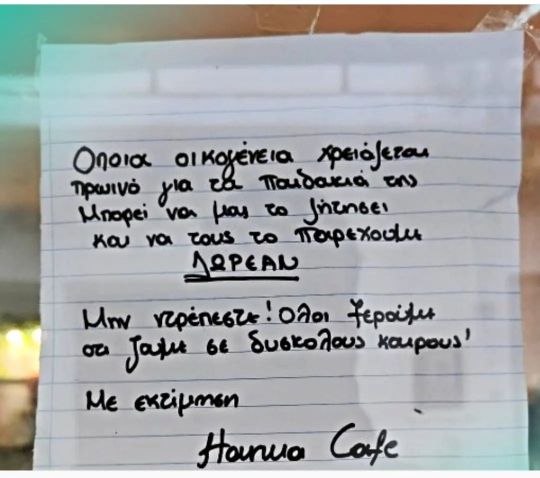 Οποια οικογένεια χρειάζεται
πρωινό για τα παιδακιά της
Μπορεί να μας το ζητησει
και να τους το παρεχουμε
ΔΩΡΕΑΝ
Μην ντρέπεστε! Ολοι ξερούμε
οτι ζαμε σε δυσκολους καιρους!
Με εκτίμηση
Harwa Cafe